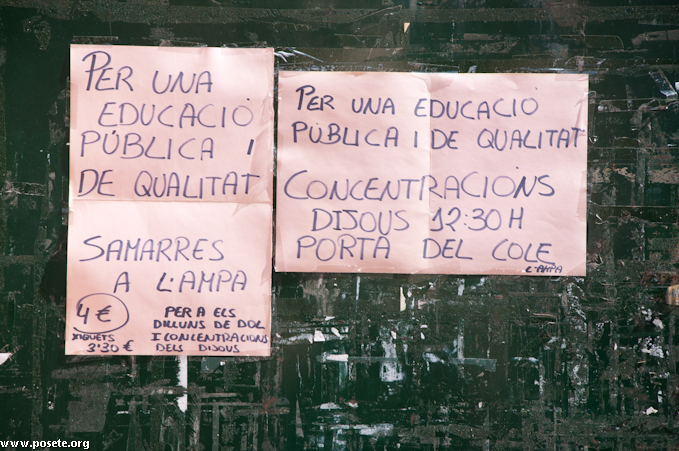 PER UNA
EDUCACIÓ
PÚBLICA I
DE QUALITAT
SAMARRES
A L'AMPA
4 €
XIQUETS
3'30 €
PER A ELS
DILLUNS DE DOL
I CONCENTRACIONS
DELS DIJOUS
PER UNA EDUCACIÓ
PÚBLICA I DE QUALITAT
CONCENTRACIONS
DIJOUS 12:30 H
PORTA DEL COLE
L'AMPA
www.posete.org